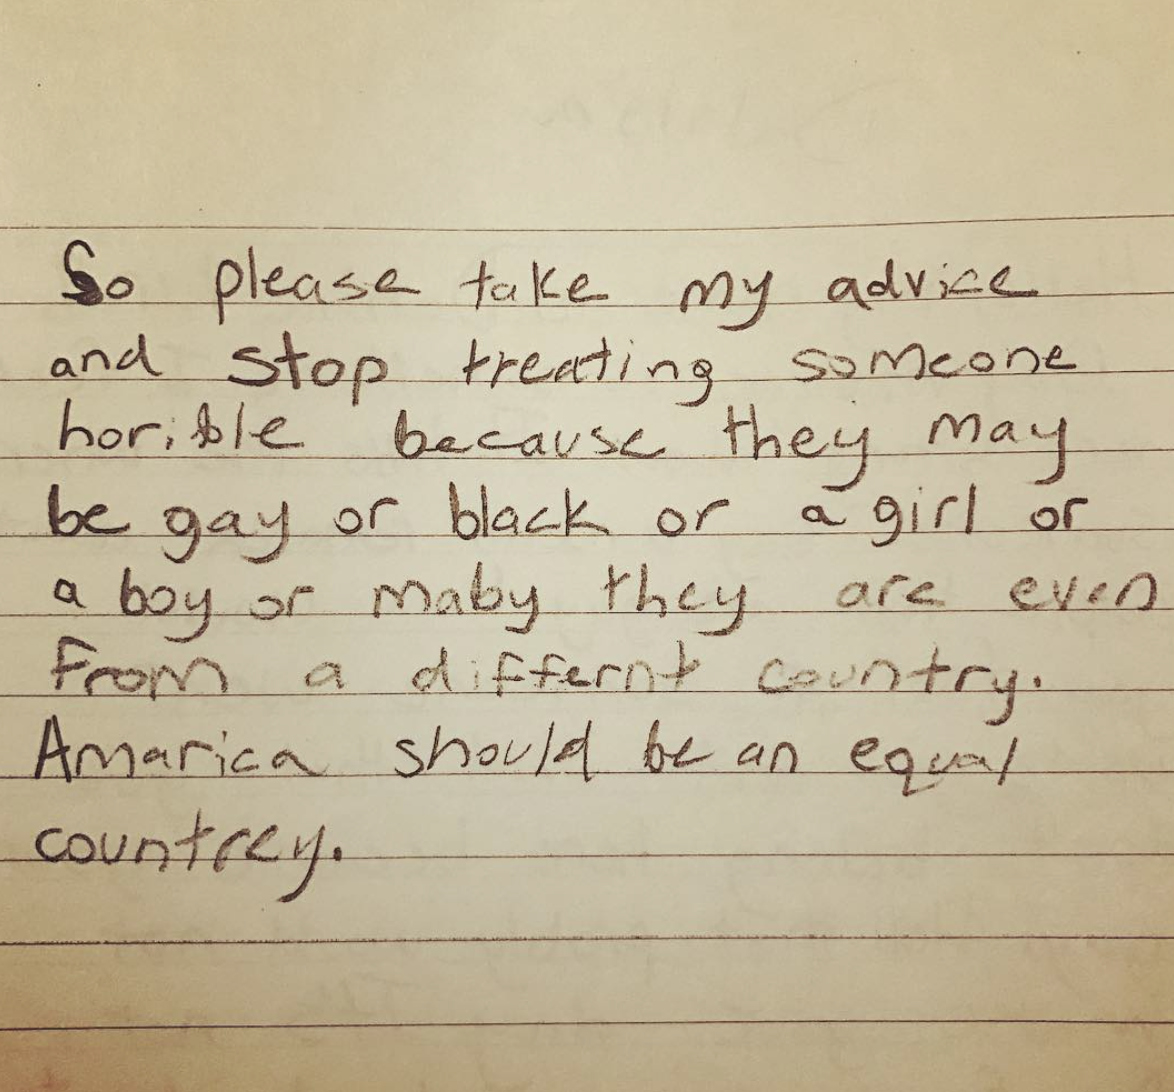 So please take my advice
and stop treating someone
horible because they may
be gay or black or a girl or
a boy or maby they are even
from a differnt country.
Amarica should be an equal
countrey.